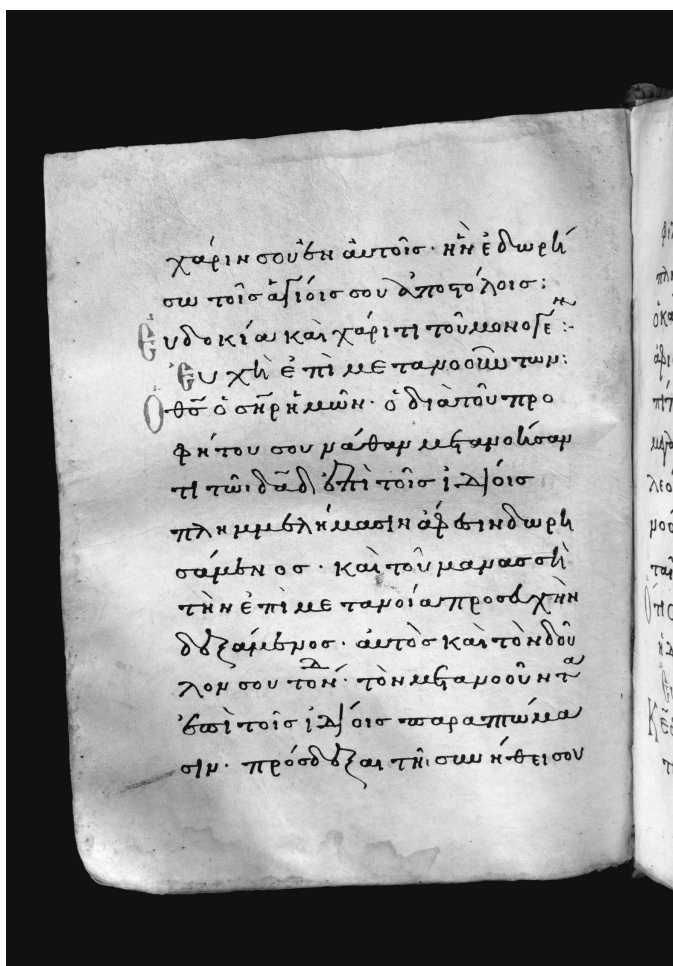 χάριν σου ἐν αὐτοῖς· ἣν ἐδωρή
σω τοῖς ἁγίοις σου ἀποστόλοις:
Εὐδοκία καὶ χάριτι τοῦ μονογε ͂ν:
Εὐχὴ ἐπὶ μετανοούντων:
Ὁ θ̅ς̅ ὁ σ̅η̅ρ̅ ἡμῶν· ὁ διὰ τοῦ προ
φήτου σου νάθαν μετανοήσαν
τι τῶι δα̅δ̅ ἐπὶ τοῖς ἰδίοις
πλημμελήμασιν ἄφεσιν δωρη
σάμενος· καὶ τοῦ μανασσῆ
τὴν ἐπὶ μετανοία προσευχὴν
δεξάμενος· αὐτὸς καὶ τὸν δοῦ
λον σου τόνδ· τὸν μετανοοῦντα
ἐπὶ τοῖς ἰδίοις παραπτώμα
σιν· πρόσδεξαι τῆι συνήθει σου